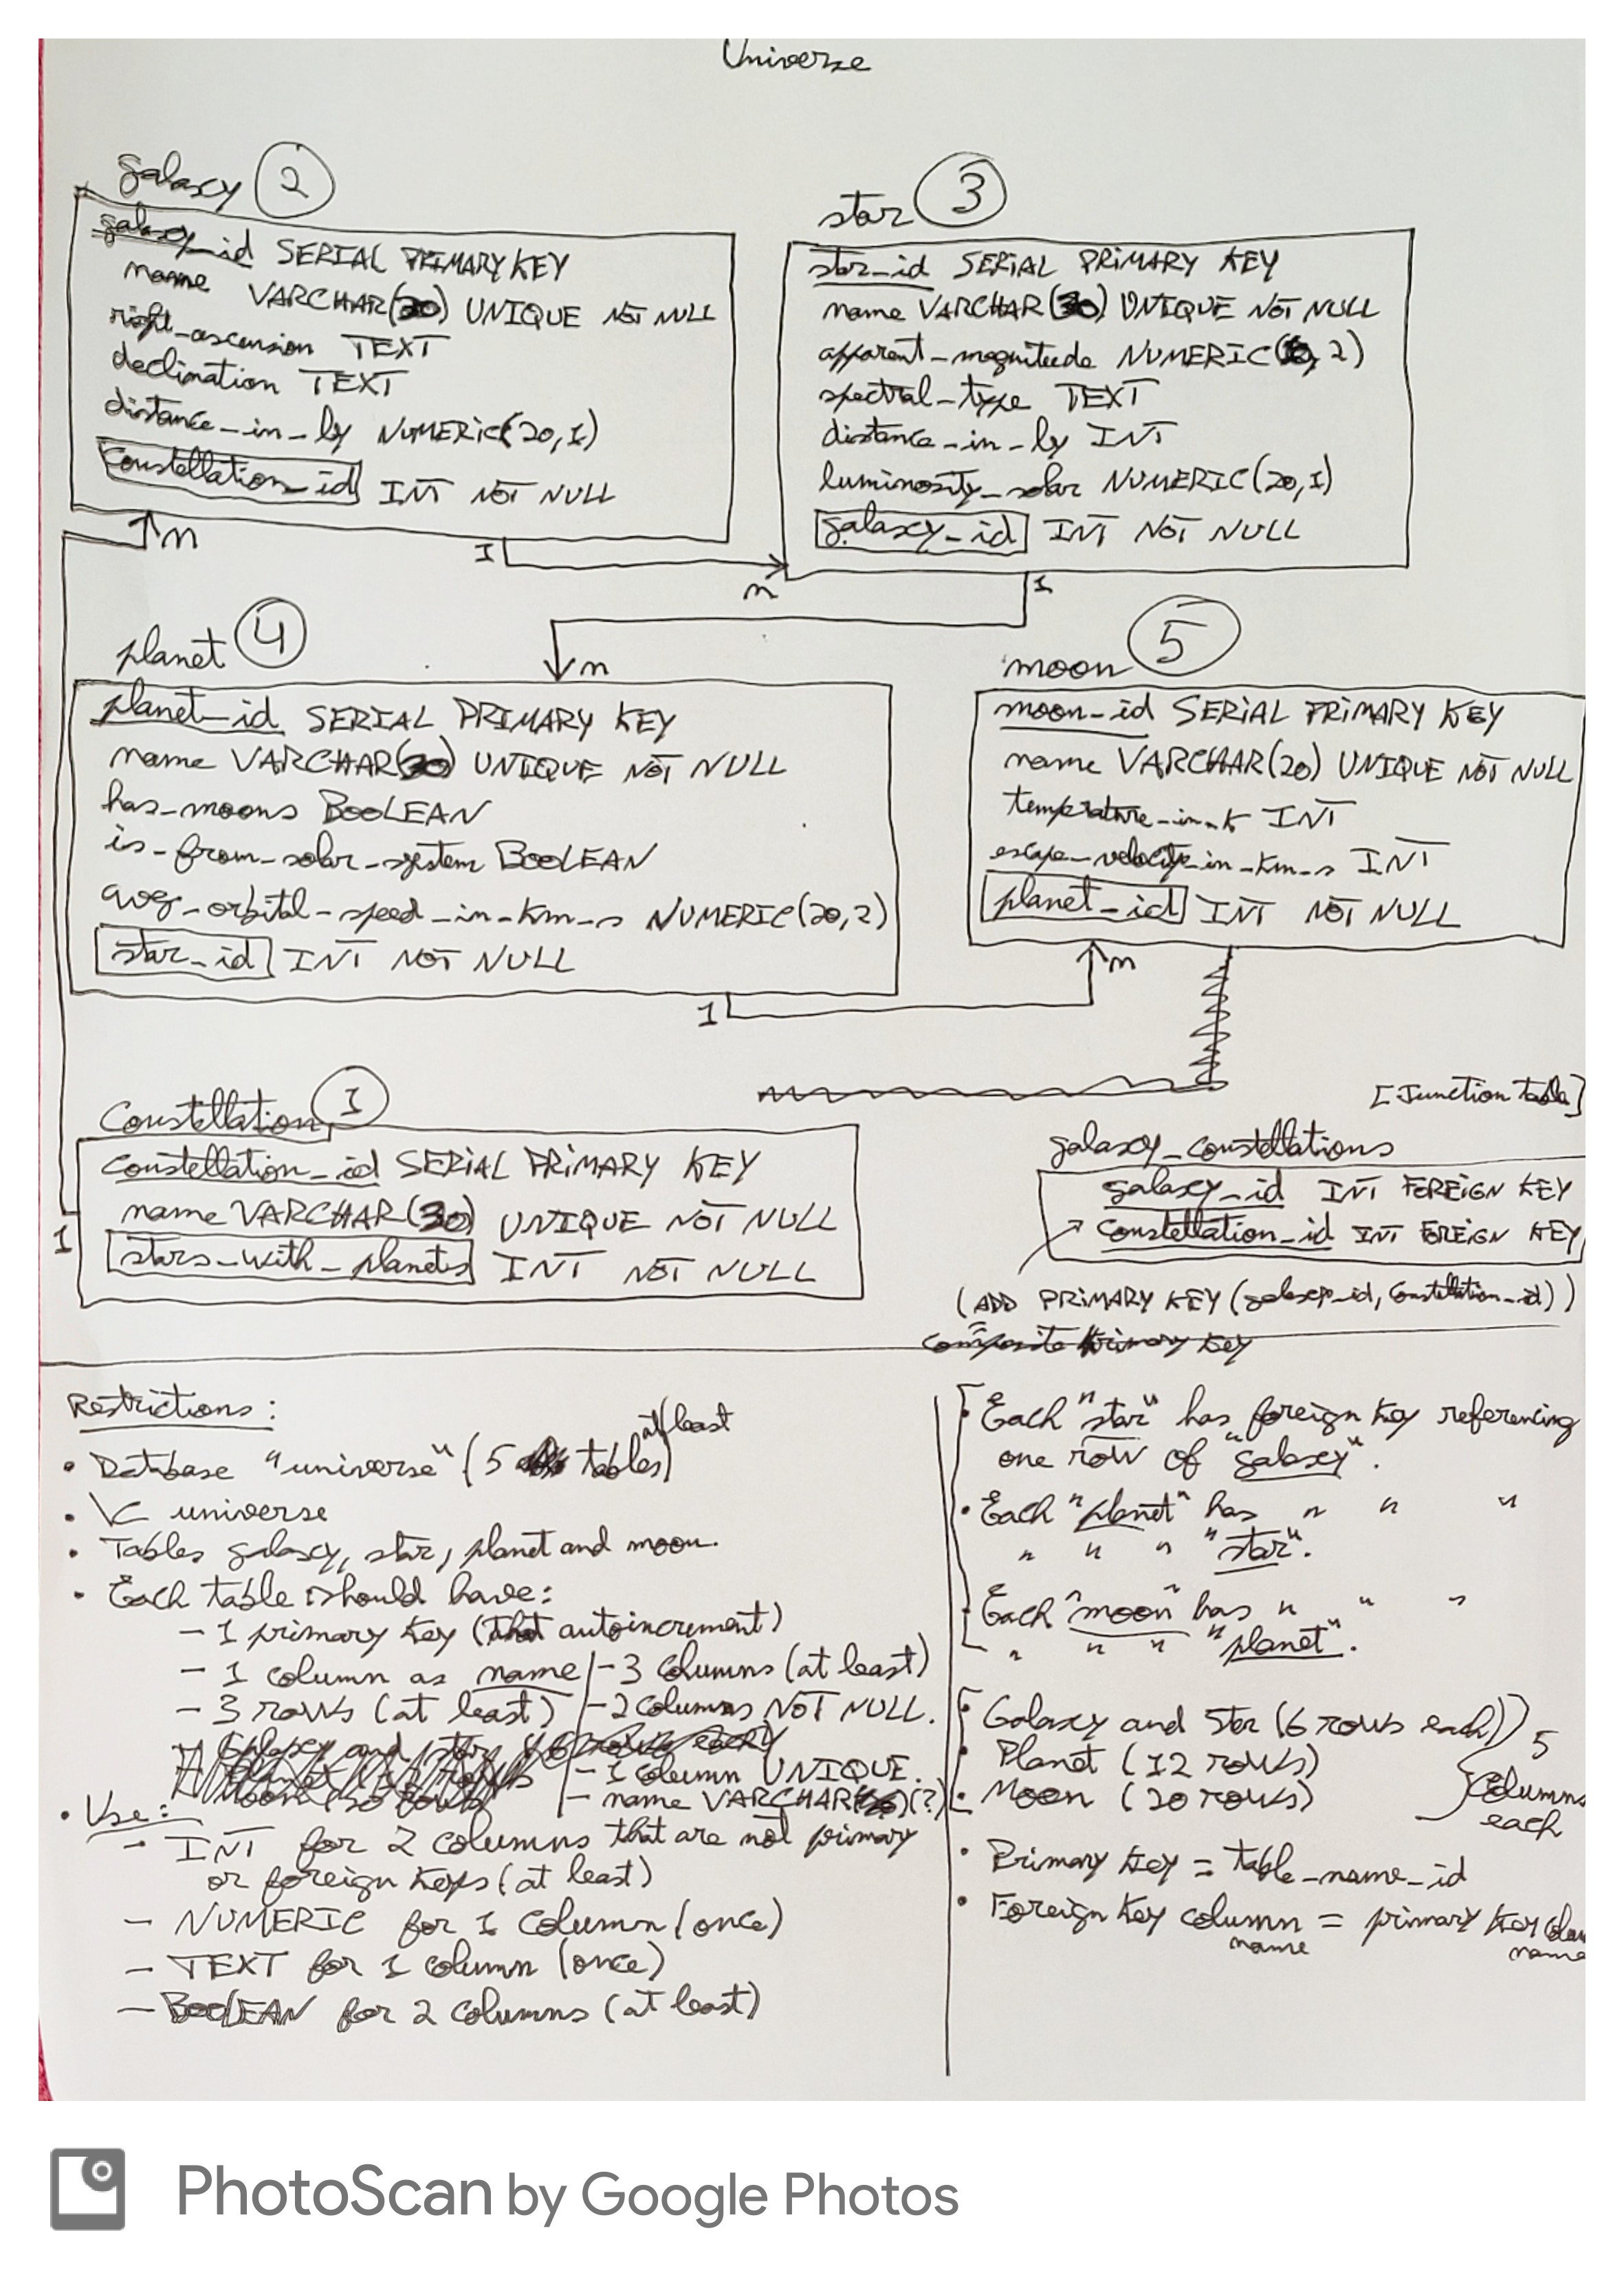 Universe
galaxy 2
galaxy_id SERIAL PRIMARY KEY
name VARCHAR(30) UNIQUE NOT NULL
right_ascension TEXT
declination TEXT
distance_in_ly NUMERIC(20,1)
constellation_id INT NOT NULL
n
1
star 3
star_id SERIAL PRIMARY KEY
name VARCHAR(30) UNIQUE NOT NULL
apparent_magnitude NUMERIC( , 2)
spectral_type TEXT
distance_in_ly INT
luminosity_solar NUMERIC(20,1)
galaxy_id INT NOT NULL
n
1
planet 4
n
planet_id SERIAL PRIMARY KEY
name VARCHAR(30) UNIQUE NOT NULL
has_moons BOOLEAN
is_from_solar_system BOOLEAN
avg_orbital_speed_in_km_s NUMERIC(20,2)
star_id INT NOT NULL
1
moon 5
moon_id SERIAL PRIMARY KEY
name VARCHAR(20) UNIQUE NOT NULL
temperature_in_K INT
escape_velocity_in_km_s INT
planet_id INT NOT NULL
n
Constellation 1
constellation_id SERIAL PRIMARY KEY
name VARCHAR(30) UNIQUE NOT NULL
stars_with_planets INT NOT NULL
1
[Junction table]
galaxy_constellations
galaxy_id INT FOREIGN KEY
constellation_id INT FOREIGN KEY
(ADD PRIMARY KEY (galaxy_id, constellation_id))
composite primary key
Restrictions:
• Database "universe" (5 tables) at least
• \c universe
• Tables galaxy, star, planet and moon.
• Each table should have:
– 1 primary key (that autoincrement)
– 1 column as name
– 3 columns (at least)
– 3 rows (at least)
– 2 columns NOT NULL.
– 1 column UNIQUE.
– name VARCHAR( )(?)
• Use:
– INT for 2 columns that are not primary
or foreign keys (at least)
– NUMERIC for 1 column (once)
– TEXT for 1 column (once)
– BOOLEAN for 2 columns (at least)
• Each "star" has foreign key referencing
one row of "galaxy".
• Each "planet" has " " "
" " " "star".
• Each "moon" has " " "
" " " "planet".
• Galaxy and Star (6 rows each)
• Planet (12 rows)
• Moon (20 rows)
5
columns
each
• Primary key = table_name_id
• Foreign key column = primary key colum
name name
PhotoScan by Google Photos